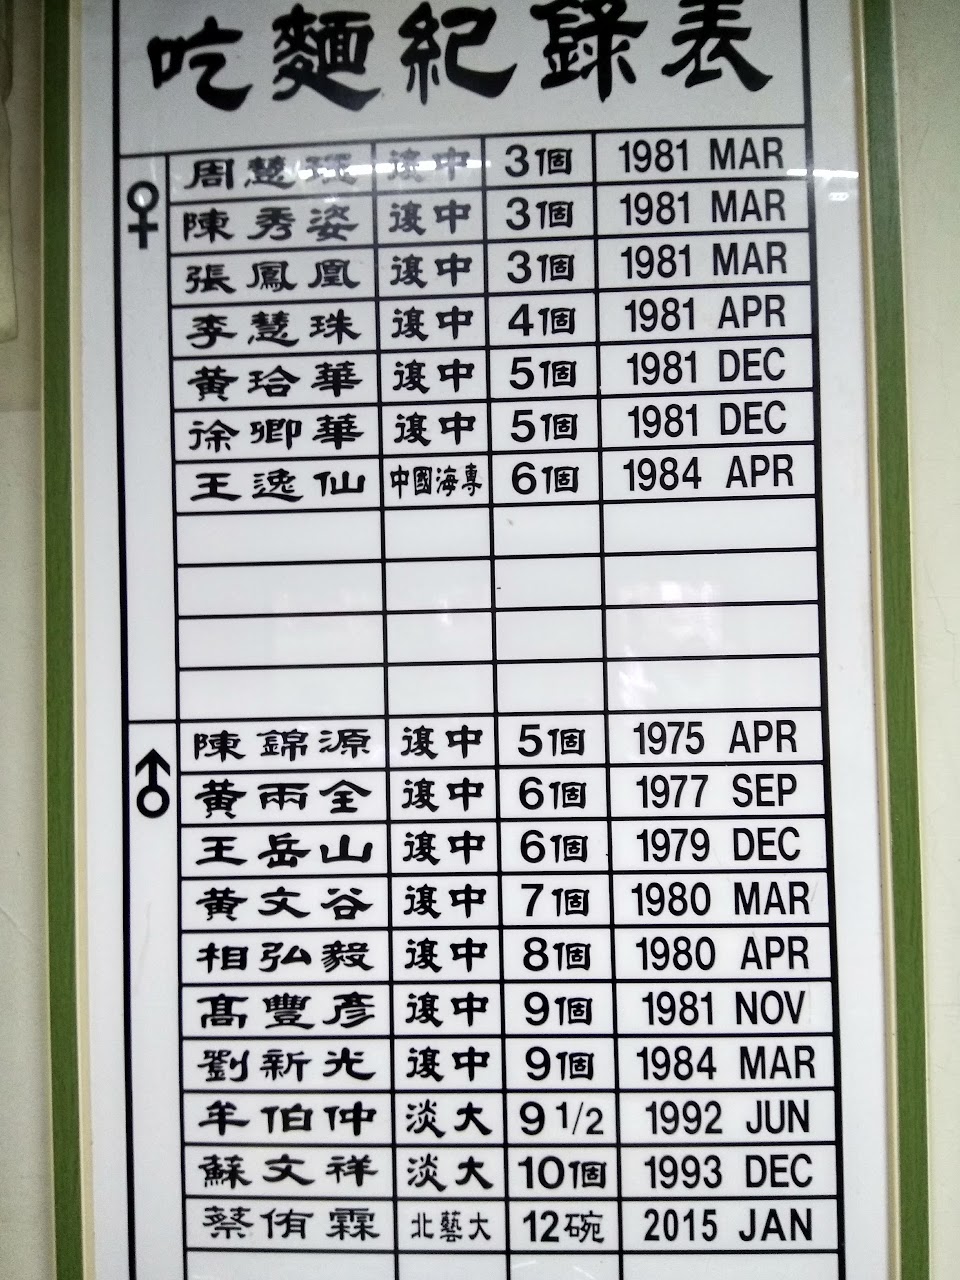 吃麵紀錄表
♀
周慧珽 復中 3個 1981 MAR
陳秀姿 復中 3個 1981 MAR
張鳳凰 復中 3個 1981 MAR
李慧珠 復中 4個 1981 APR
黃珨華 復中 5個 1981 DEC
徐卿華 復中 5個 1981 DEC
王逸仙 中國海專 6個 1984 APR
♂
陳錦源 復中 5個 1975 APR
黃兩全 復中 6個 1977 SEP
王岳山 復中 6個 1979 DEC
黃文谷 復中 7個 1980 MAR
相弘毅 復中 8個 1980 APR
高豐彥 復中 9個 1981 NOV
劉新光 復中 9個 1984 MAR
牟伯仲 淡大 9 1/2 1992 JUN
蘇文祥 淡大 10個 1993 DEC
蔡侑霖 北藝大 12碗 2015 JAN